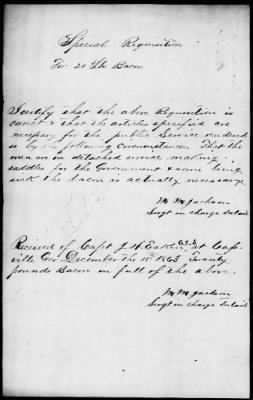 Special Requisition
For 20 Lbs Bacon
I certify that the above Requisition is
correct & that the articles specified are
necessary for the public Service rendered
so by the following circumstances. That the
men are on detached service making
saddles for the Government & some being
sick the bacon is actually necessary
M M Jackson
Sergt in charge Detail
Received of Capt J. H. at
ville Geo December the 18th 1863 Twenty
pounds Bacon in full of the above.
M M Jackson
Sergt in charge Detail